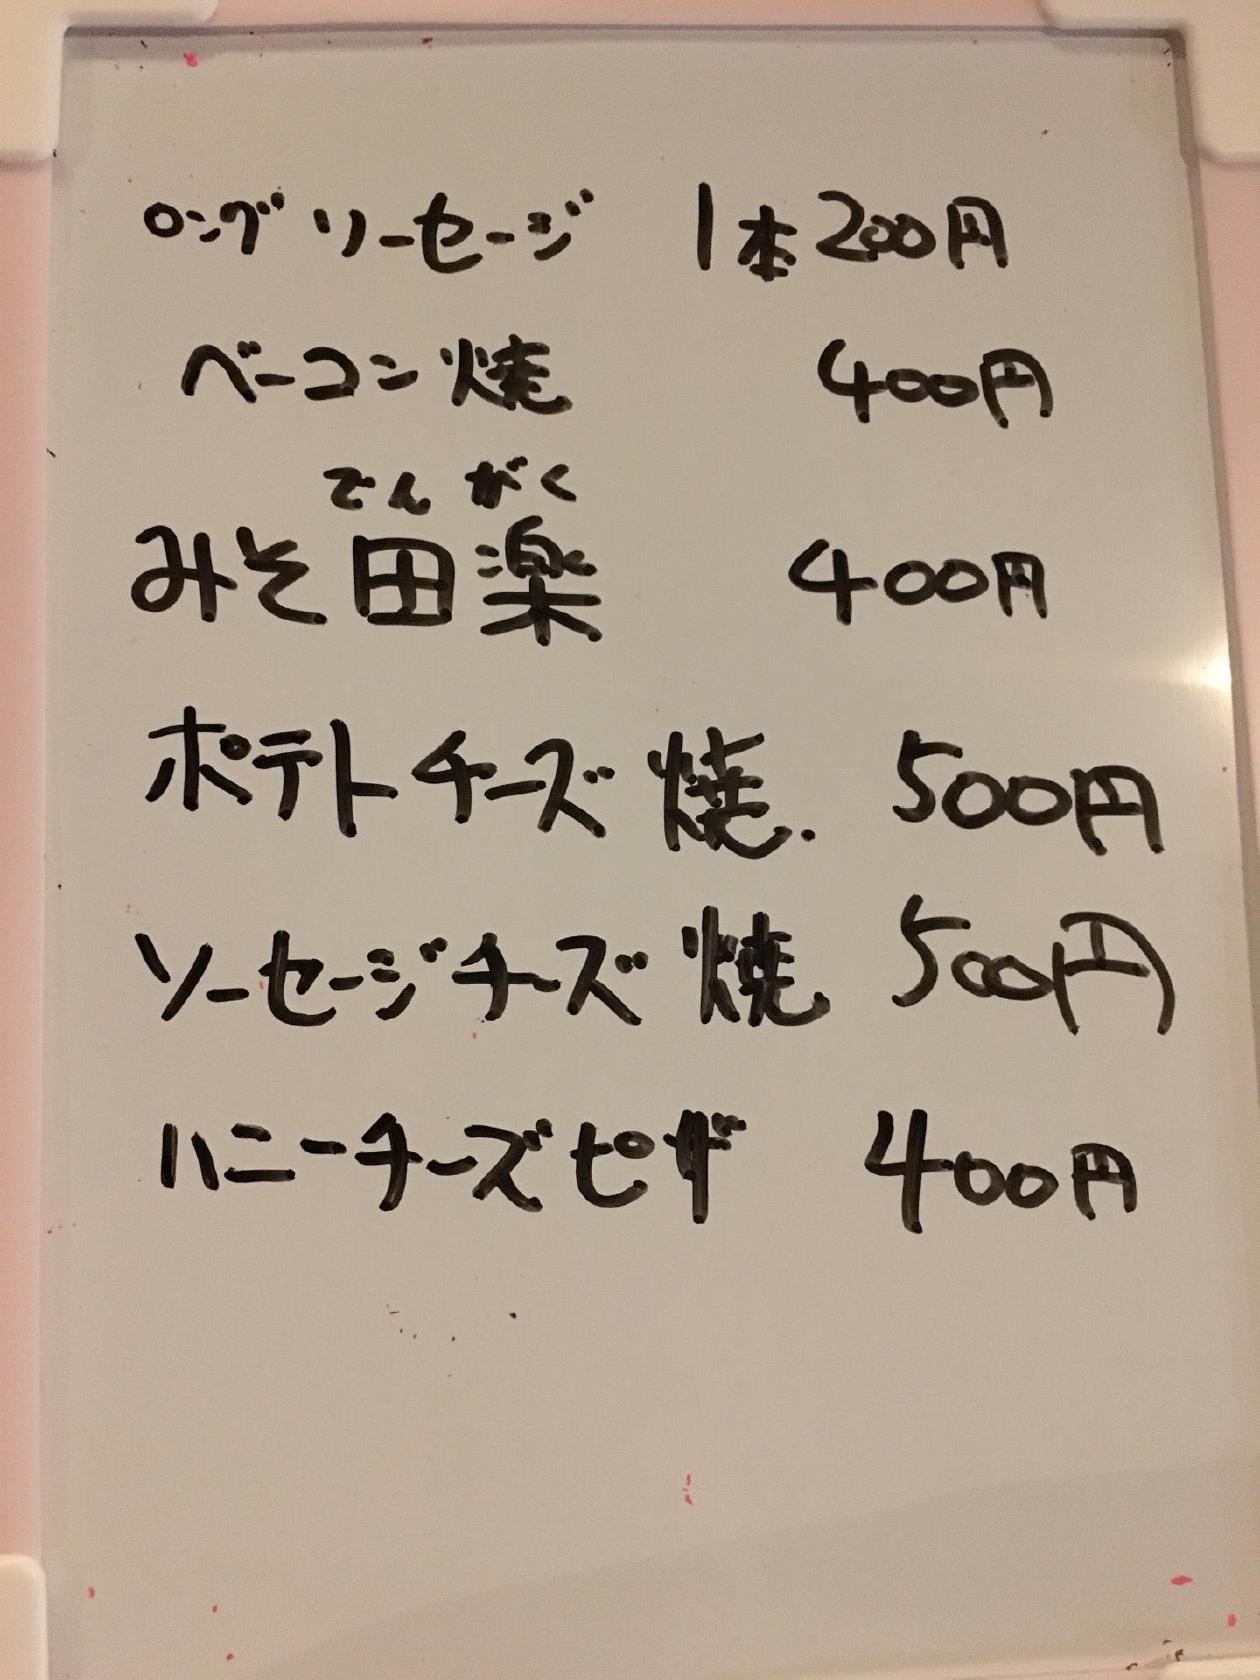 ロングソーセージ 1本200円
ベーコン焼 400円
でんがく
みそ田楽 400円
ポテトチーズ焼. 500円
ソーセージチーズ焼 500円
ハニーチーズピザ 400円